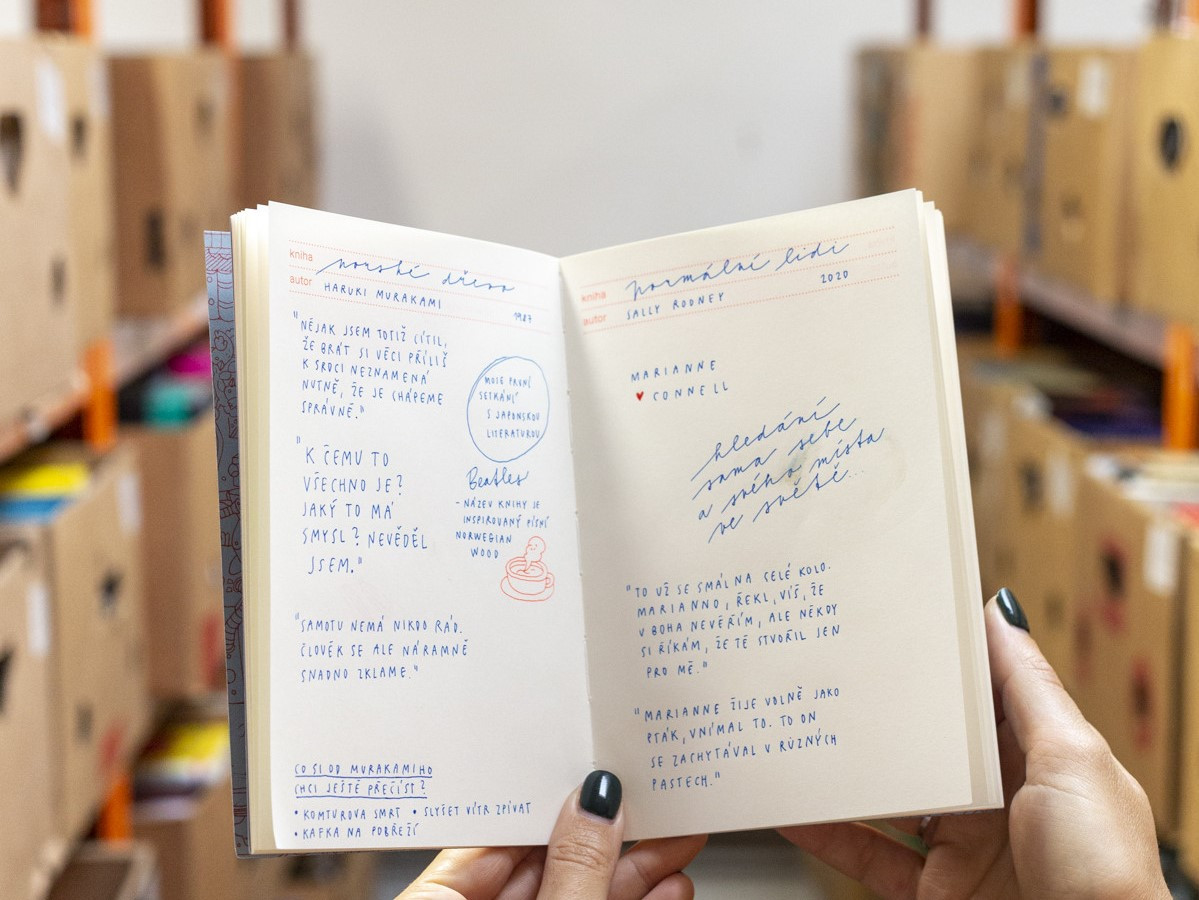 kniha norské dřevo
autor HARUKI MURAKAMI 1987
"NĚJAK JSEM TOTIŽ CÍTIL,
ŽE BRÁT SI VĚCI PŘÍLIŠ
K SRDCI NEZNAMENÁ
NUTNĚ, ŽE JE CHÁPEME
SPRÁVNĚ."
"K ČEMU TO
VŠECHNO JE?
JAKÝ TO MÁ
SMYSL? NEVĚDĚL
JSEM."
"SAMOTU NEMÁ NIKDO RÁD.
ČLOVĚK SE ALE NÁRAMNĚ
SNADNO ZKLAME."
MOJE PRVNÍ
SETKÁNÍ
S JAPONSKOU
LITERATUROU
Beatles
- NÁZEV KNIHY JE
INSPIROVANÝ PÍSNÍ
NORWEGIAN
WOOD
CO SI OD MURAKAMIHO
CHCI JEŠTĚ PŘEČÍST?
• KOMTUROVA SMRT • SLYŠET VÍTR ZPÍVAT
• KAFKA NA POBŘEŽÍ
kniha normální lidi
autor SALLY ROONEY 2020
MARIANNE
♥ CONNELL
hledání
sama sebe
a svého místa
ve světě...
"TO UŽ SE SMÁL NA CELÉ KOLO.
MARIANNO, ŘEKL, VÍŠ, ŽE
V BOHA NEVĚŘÍM, ALE NĚKDY
SI ŘÍKÁM, ŽE TĚ STVOŘIL JEN
PRO MĚ."
"MARIANNE ŽIJE VOLNĚ JAKO
PTÁK, VNÍMAL TO. TO ON
SE ZACHYTÁVAL V RŮZNÝCH
PASTECH."